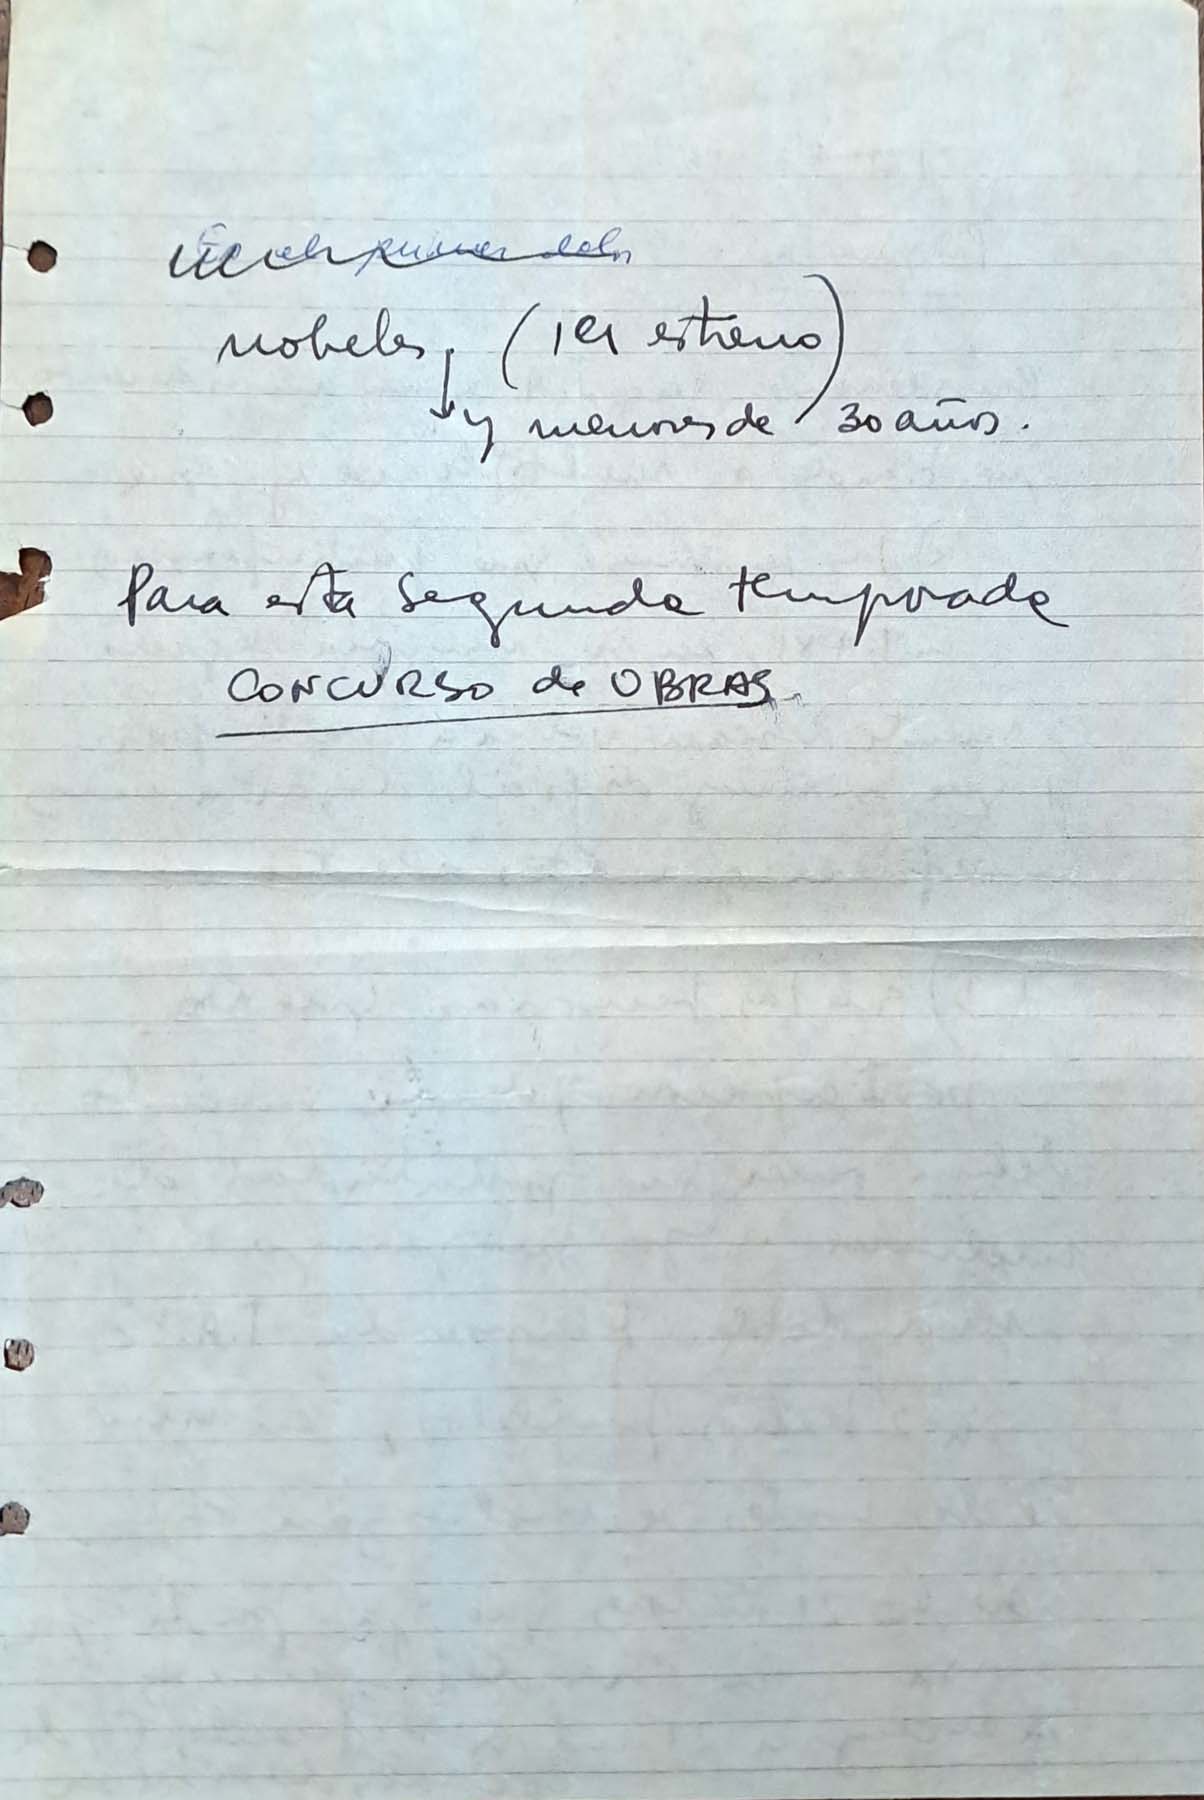 nobeles, (1er estreno)
y menores de 30 años.
Para esta segunda temporada
CONCURSO de OBRAS.